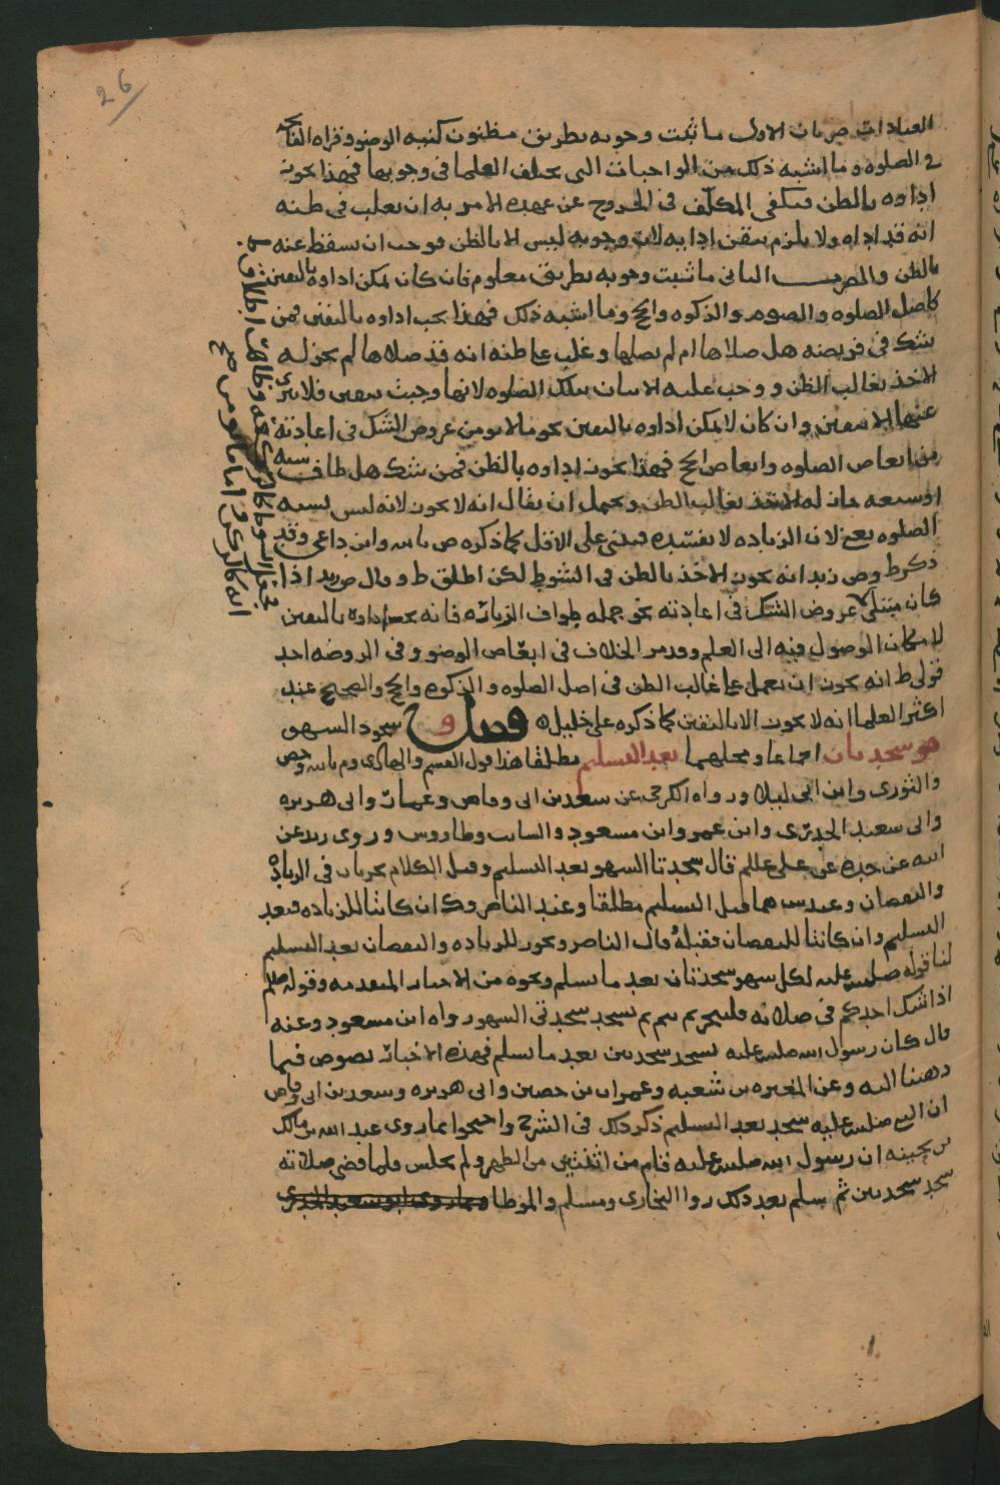 26
العبادات ضربان الاول ما ثبت وجوبه بطريق مظنون كنيه الوضو وقراه الفاتحه
في الصلوه وما اشبه ذلك من الواجبات التي يختلف العلما في وجوبها فهذا يجوز
اداوه بالظن فيكفي المكلف في الخروج عن عهده الامر به ان يغلب في ظنه
انه قد اداه ولا يلزم تيقن ادايه لان وجوبه ليس الا بالظن فوجب ان يسقط عنه
بالظن والضرب الثاني ما ثبت وجوبه بطريق معلوم فان كان يمكن اداوه باليقين
كاصل الصلوه والصوم والزكوه والحج وما اشبه ذلك فهذا يجب اداوه باليقين فمن
شك في فريضه هل صلاها ام لم يصلها وغلب علي ظنه انه قد صلاها لم يجز له
الاخذ بغالب الظن ووجب عليه الاتيان بتلك الصلوه لانها وجبت بيقين فلا يبرى
عنها الا بيقين وان كان لا يمكن اداوه باليقين نحو ما لا يومن عروض الشك في اعادته
من ابعاض الصلوه وابعاض الحج فهذا يجوز اداوه بالظن فمن شك هل طاف سته
او سبعه فان له الاخذ بغالب الظن ويحتمل ان يقال انه لا يجوز لانه ليس يشبه
الصلوه يعني لان الزياده لا تفسده فيبني على الاقل كما ذكره ص بالله وابن داعي وقد
ذكر ط وص زيد انه يجوز الاخذ بالظن في الشوط لكن اطلق ط وقال ص زيد اذا
كان مبتلى بعروض الشك في اعادته نحو جمله طواف الزياره فانه يجب اداوه باليقين
لامكان الوصول فيه الى العلم وقد مر الخلاف في ابعاض الوضو وفي الروضه احد
قولي ط انه يجوز ان يعمل علي غالب الظن في اصل الصلوه والزكوه والحج والصحيح عند
اكثر العلما انه لا يجوز الا باليقين كما ذكره علي خليل ه فصل و ح سجود السهو
هو سجدتان اجماعا ومحلهما بعد التسليم مطلقا هذا قول القسم والهادي وم بالله وحص
والثوري وابن ابي ليلا ورواه الكرخي عن سعد بن ابي وقاص وعمار وابي هريره
وابي سعيد الخدري وابن عمر وابن مسعود والسايب وطاووس وروى زيد عن
ابيه عن جده عن علي عللم قال سجدتا السهو بعد التسليم وقبل الكلام يجزيان في الزياده
والنقصان وعند س هما قبل التسليم مطلقا وعند الناصر وك ان كانتا للزياده فبعد
التسليم وان كانتا للنقصان فقبله قال الناصر ويجوز للزياده والنقصان بعد التسليم
لنا قوله صلى الله عليه لكل سهو سجدتان بعد ما يسلم ونحوه من الاخبار المتقدمه وقوله صللم
اذا شك احدكم في صلاته فليتحر ثم يتم ثم يسجد سجدتي السهو رواه ابن مسعود وعنه
قال كان رسول الله صلى الله عليه يسجد سجدتين بعد ما يسلم فهذه الاخبار نصوص فيما
ذهبنا اليه وعن المغيره بن شعبه وعمران بن حصين وابي هريره وسعد بن ابي وقاص
ان النبي صلى الله عليه سجد بعد التسليم ذكر ذلك في الشرح واحتجوا بما روي عبد الله بن مالك
بن بحينه ان رسول الله صلى الله عليه قام من اثنتين من الظهر ولم يجلس فلما قضى صلاته
سجد سجدتين ثم سلم بعد ذلك روا البخاري ومسلم والموطا وبما روى ابو سعيد الخدري